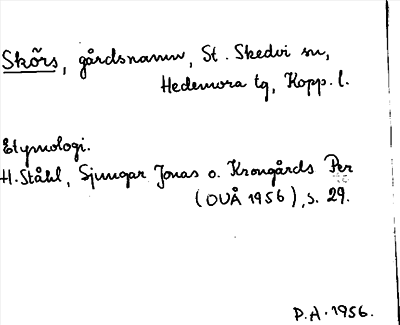 Skõrs, gårdsnamn, St. Skedvi sn,
Hedemora tg, Kopp. l.
Etymologi.
H. Ståhl, Sjungar Jonas o. Krongårds Per
(OUÅ 1956), s. 29.
P.A. 1956.